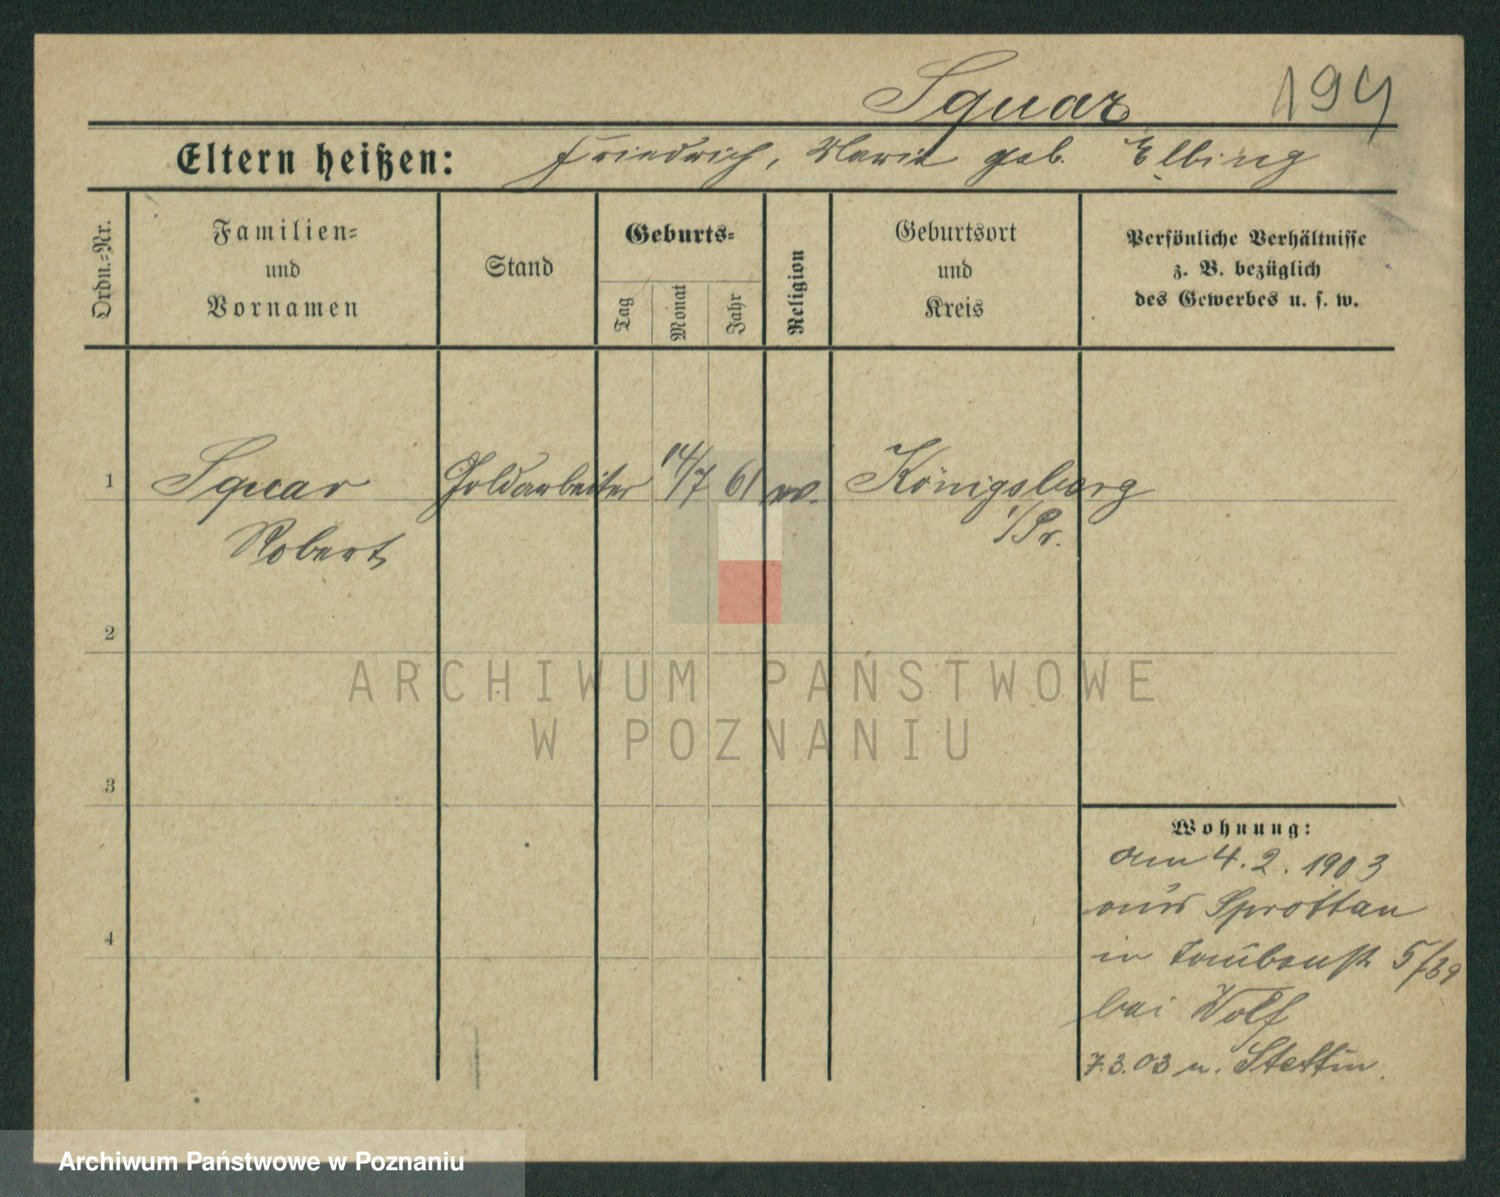 Squar 194
Eltern heißen: Friedrich, Marie geb. Elbing
Ordn.-Nr.
Familien-
und
Vornamen
Stand
Geburts-
Tag
Monat
Jahr
Religion
Geburtsort
und
Kreis
Persönliche Verhältnisse
z. B. bezüglich
des Gewerbes u. s. w.
1 Squar Goldarbeiter 14/7 61 Königsberg
Robert i/Pr.
2
ARCHIWUM PAŃSTWOWE
W POZNANIU
3
Wohnung:
am 4. 2. 1903
aus Sprottau
in Taubenstr 5/39
bei Wolf
7.3.03 n. Stettin
4
Archiwum Państwowe w Poznaniu